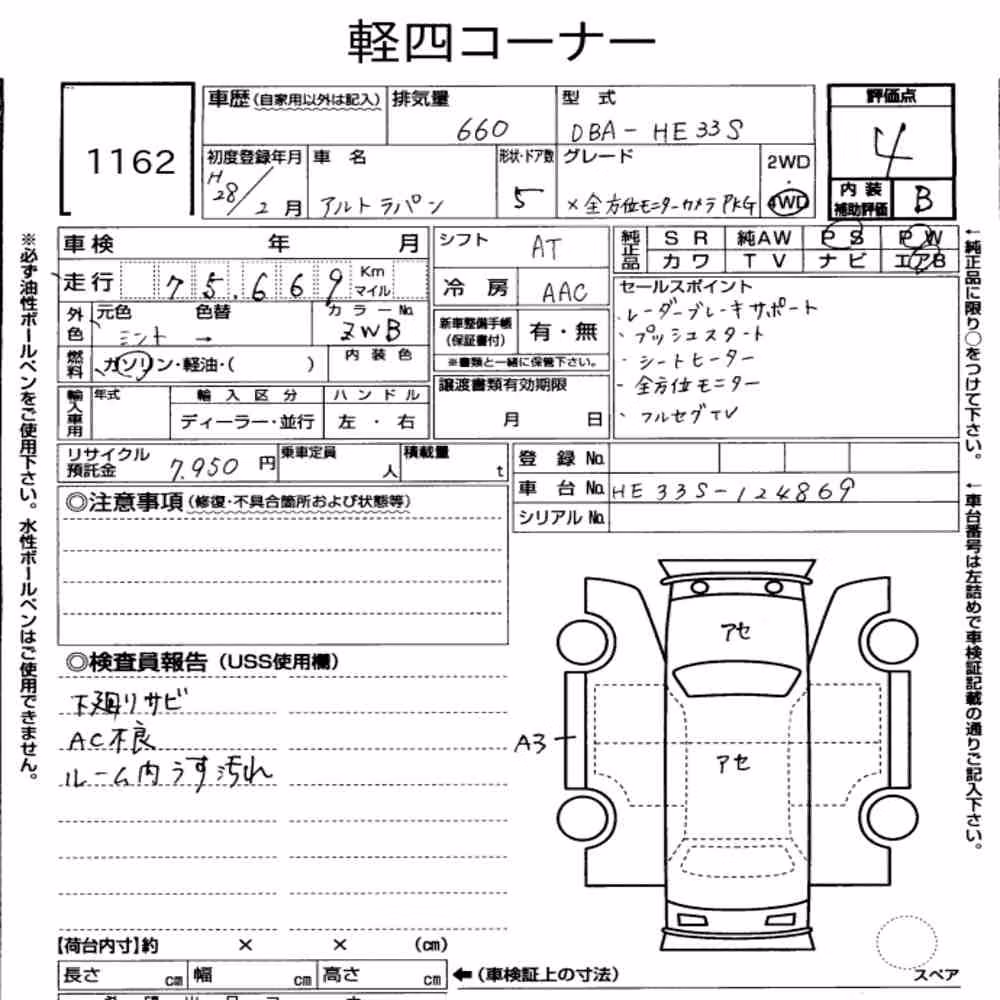 軽四コーナー
1162
車歴(自家用以外は記入) 排気量 型式
660 DBA-HE33S
評価点
4
内装補助評価 B
初度登録年月 車名 形状・ドア数 グレード 2WD・4WD
H28/2月 アルトラパン 5 X全方位モニターカメラPKG
車検 年 月
走行 75,669 Km マイル
外色 元色 色替 カラーNo.
ミント → ZWB
燃料 ガソリン・軽油・( ) 内装色
輸入車用 年式 輸入区分 ハンドル
ディーラー・並行 左・右
シフト AT
冷房 AAC
新車整備手帳(保証書付) 有・無
※書類と一緒に保管下さい。
譲渡書類有効期限
月 日
純正品 SR 純AW PS PW
カワ TV ナビ エアB
セールスポイント
・レーダーブレーキサポート
・プッシュスタート
・シートヒーター
・全方位モニター
・フルセグTV
リサイクル預託金 7,950円 乗車定員 人 積載量 t
登録No.
車台No. HE33S-124869
シリアルNo.
◎注意事項(修復・不具合箇所および状態等)
◎検査員報告(USS使用欄)
下廻りサビ
AC不良
ルーム内うす汚れ
アセ
アセ
A3
【荷台内寸】約 × × (cm)
長さ cm 幅 cm 高さ cm ←(車検証上の寸法)
スペア
※必ず油性ボールペンをご使用下さい。水性ボールペンはご使用できません。
←純正品に限り○をつけて下さい。
←車台番号は左詰めで車検証記載の通りご記入下さい。